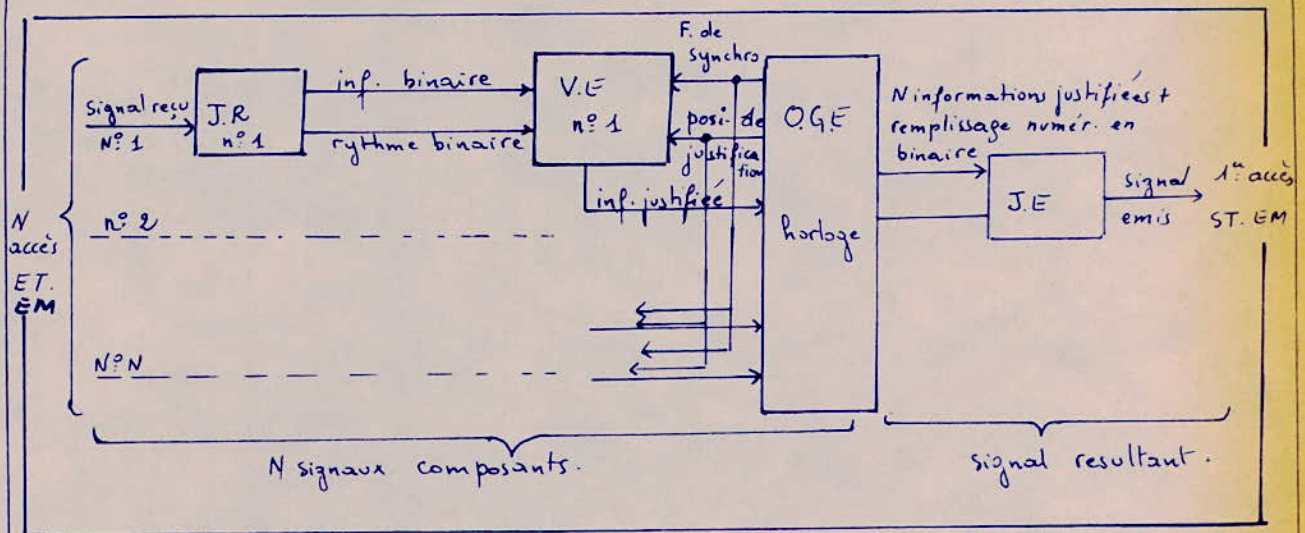 F. de
synchro
Signal reçu
N° 1
J.R
n° 1
inf. binaire
rythme binaire
V.E
n° 1
posi. de
justifica
tion
inf. justifiée
O.G.E
horloge
N informations justifiées +
remplissage numér. en
binaire
J.E
signal
emis
1er accès
ST. EM
N
accès
ET.
EM
n° 2
N° N
N signaux composants.
signal resultant.